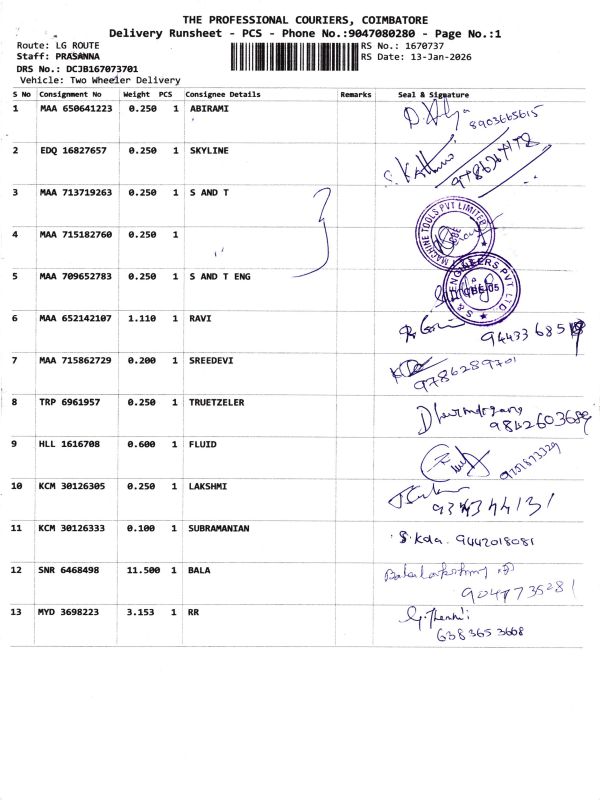 THE PROFESSIONAL COURIERS, COIMBATORE
Delivery Runsheet - PCS - Phone No.:9047080280 - Page No.:1
Route: LG ROUTE
RS No.: 1670737
Staff: PRASANNA
RS Date: 13-Jan-2026
DRS No.: DCJB167073701
Vehicle: Two Wheeler Delivery
S No Consignment No Weight PCS Consignee Details Remarks Seal & Signature
1 MAA 650641223 0.250 1 ABIRAMI 8903665615
2 EDQ 16827657 0.250 1 SKYLINE
3 MAA 713719263 0.250 1 S AND T
MACHINE TOOLS PVT LIMITED
4 MAA 715182760 0.250 1
5 MAA 709652783 0.250 1 S AND T ENG
ENGINEERS PVT LTD
6 MAA 652142107 1.110 1 RAVI
7 MAA 715862729 0.200 1 SREEDEVI 9786289701
8 TRP 6961957 0.250 1 TRUETZELER
9842603689
9 HLL 1616708 0.600 1 FLUID
10 KCM 30126305 0.250 1 LAKSHMI
11 KCM 30126333 0.100 1 SUBRAMANIAN S. Kda. 9442018081
12 SNR 6468498 11.500 1 BALA
9047735281
13 MYD 3698223 3.153 1 RR
638 365 3668